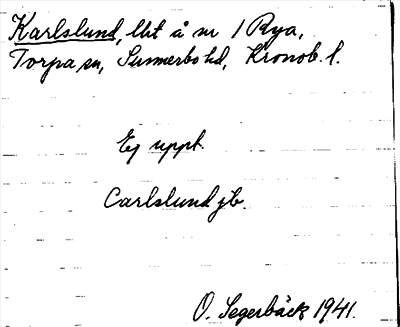 Karlslund, lht å nr 1 Rya,
Torpa sn, Sunnerbo hd, Kronob. l.
Ej uppt.
Carlslund jb.
O. Segerbäck 1941.